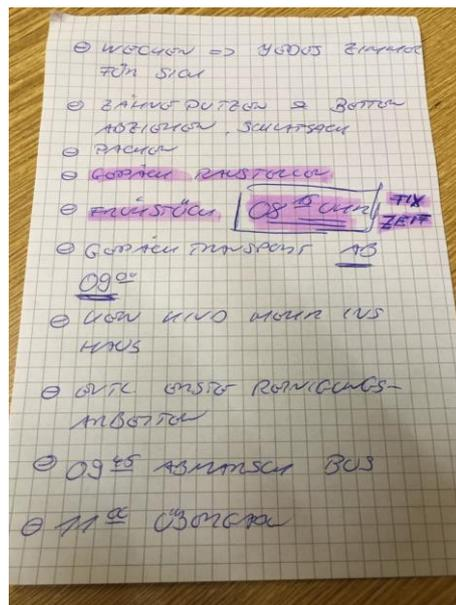 ⊖ WECKEN => JEDES ZIMMER
FÜR SICH
⊖ ZÄHNE PUTZEN & BETTEN
ABZIEHEN, SCHLAFSACK
⊖ PACKEN
⊖ GEPÄCK RAUSSTELLEN
⊖ FRÜHSTÜCK 08 15 UHR FIX
ZEIT
⊖ GEPÄCK TRANSPORT AB
09 00
⊖ KEIN KIND MEHR INS
HAUS
⊖ EVTL ERSTE REINIGUNGS-
ARBEITEN
⊖ 09 45 ABMARSCH BUS
⊖ 11 00 ÜBERGABE